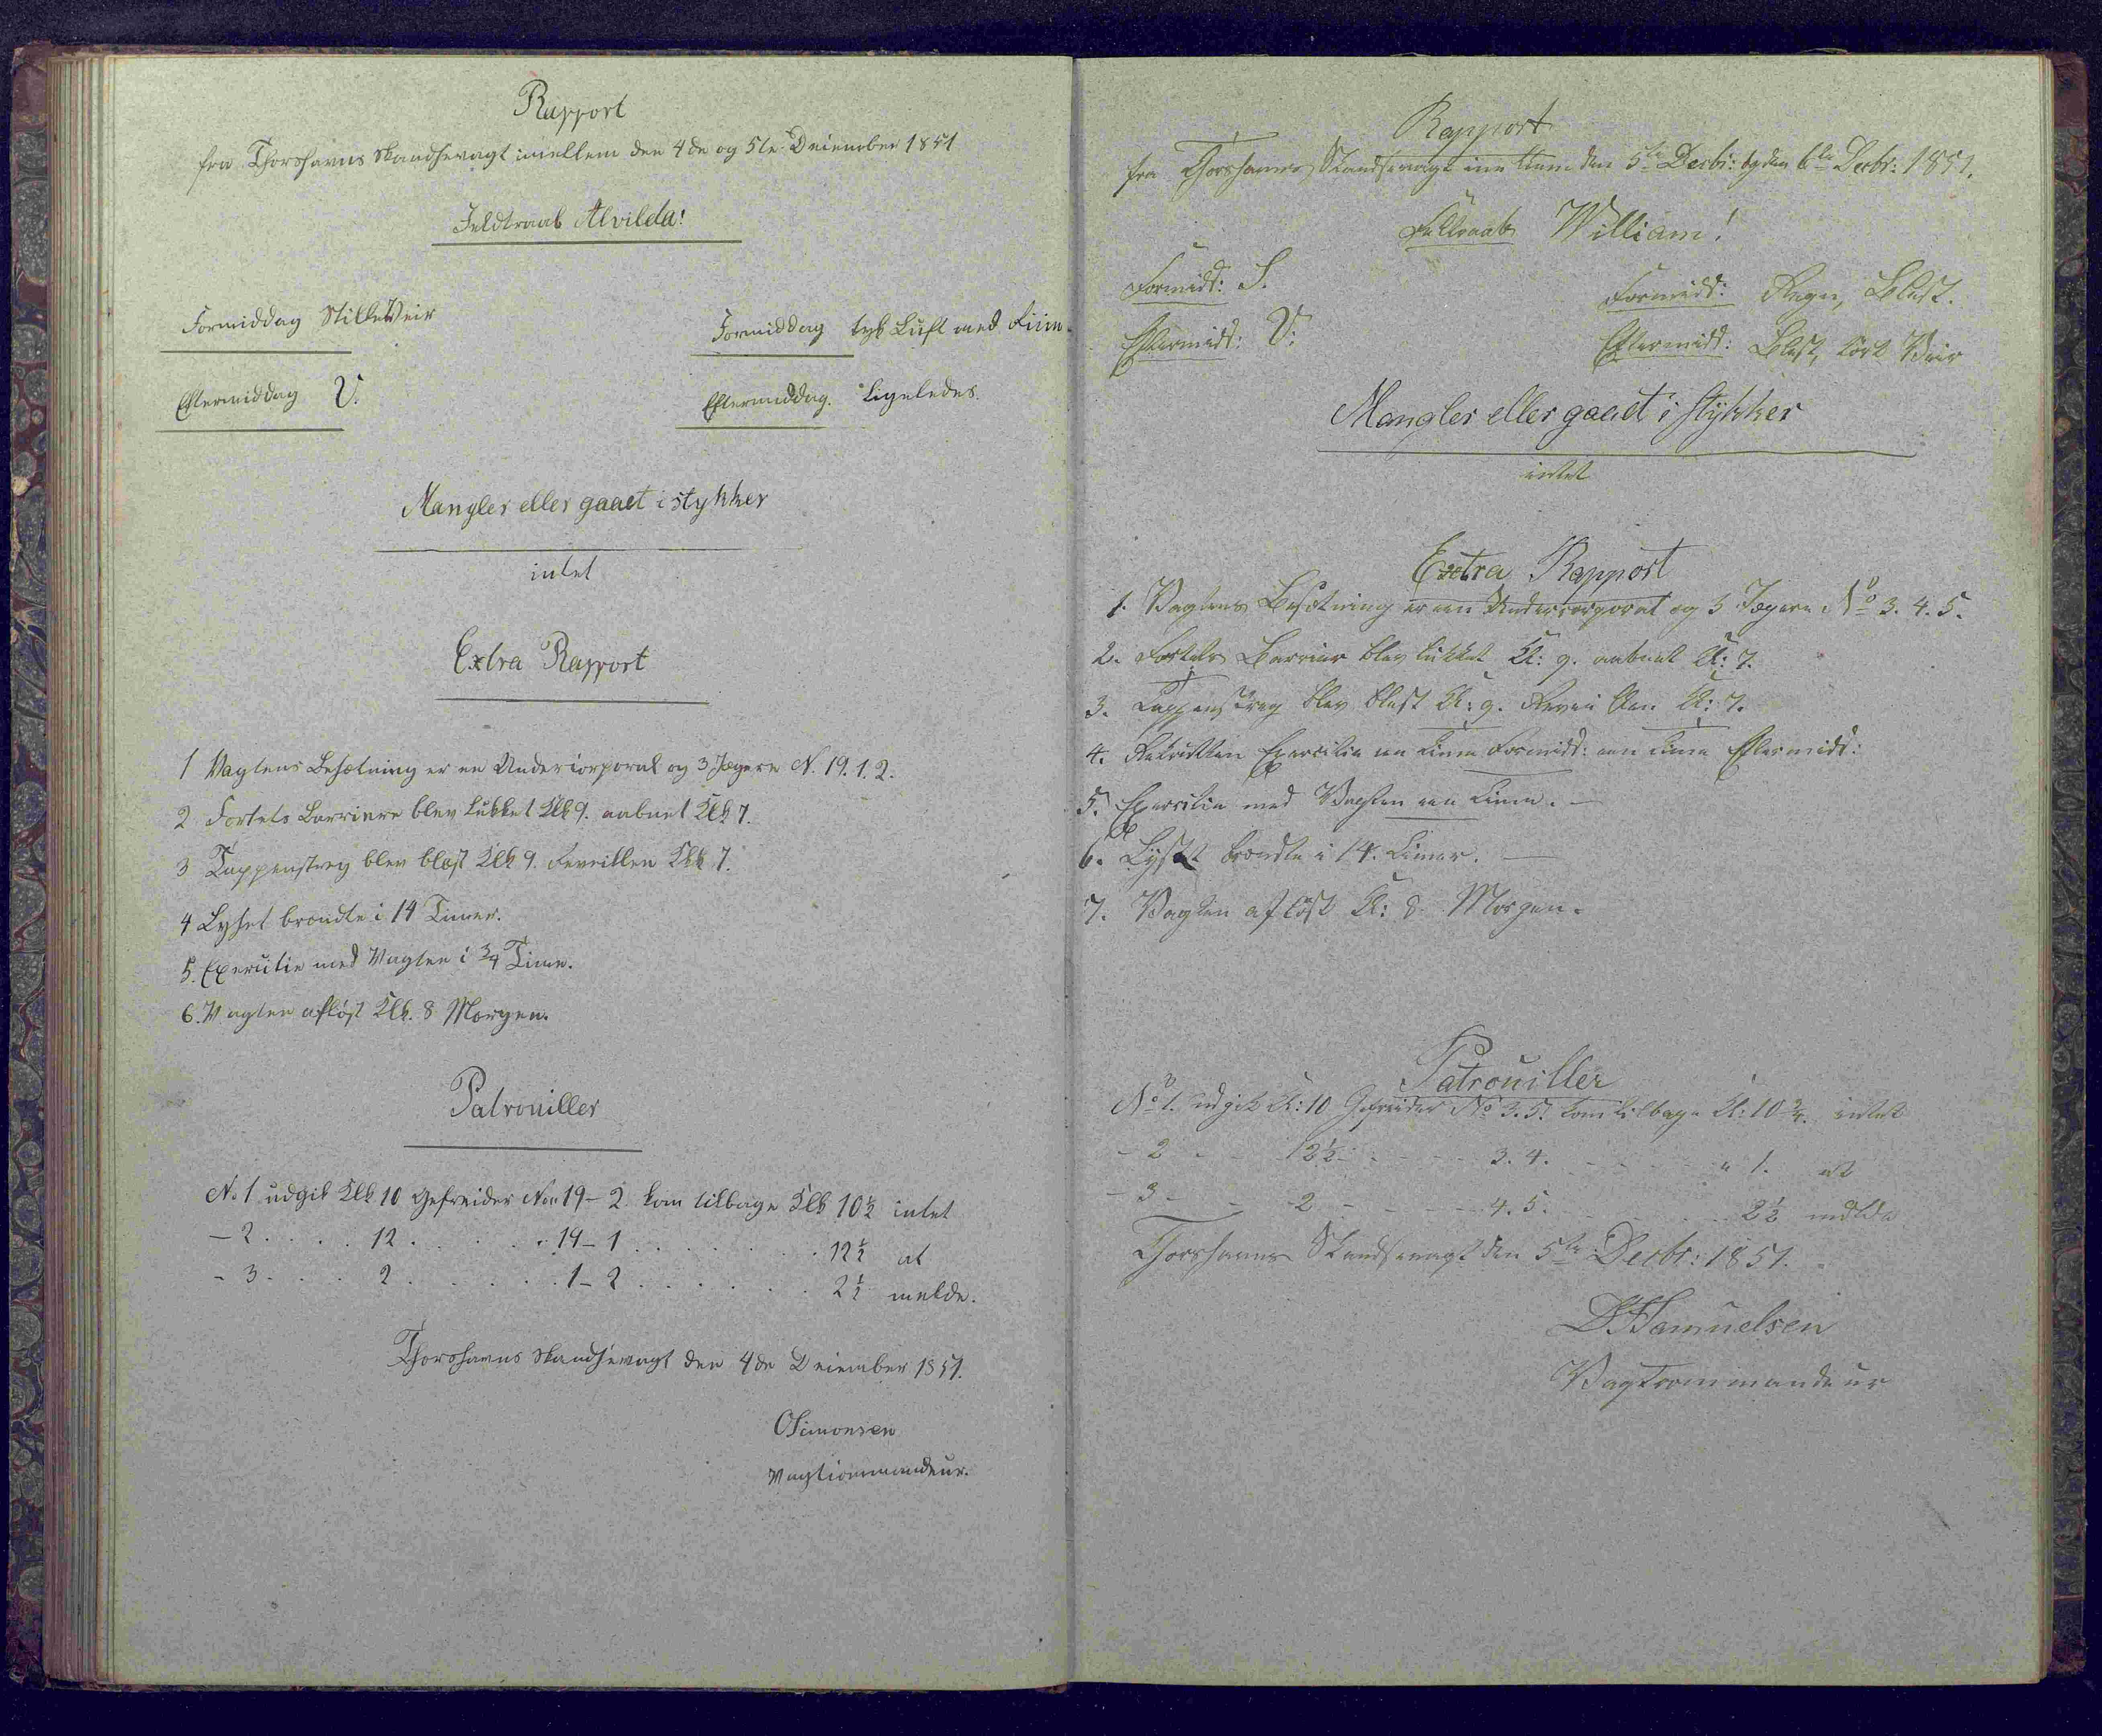 Rapport
fra Thorshavns Skandsevagt imellem den 4de og 5te December 1851
Feldtraab Alvilda!
Formiddag Stille Veir
Formiddag tyk Luft med Riim
Eftermiddag V.
Eftermiddag. Ligeledes
Mangler eller gaaet i stykker
intet
Extra Rapport
1 Vagtens Besætning er en Undercorporal og 3 Jægere N. 19. 1. 2.
2 Fortets Barriere blev lukket Klk 9. aabnet Klk 7.
3 Tappenstreg blev blæst Klk 9. Reveillen Klk 7.
4 Lyset brændte i 14 Timer.
5. Exercitie med Vagten i 3/4 Time.
6. Vagten afløst Klk. 8 Morgen.
Patrouiller
No 1 udgik Klk 10 Gefreider Nor 19 - 2 kom tilbage Klk 10½ intet
- 2 . . . . 12 . . . . . . 19 - 1 . . . . . . . 12½ at
- 3 . . . . 2 . . . . . . 1 - 2 . . . . . . . 2½ melde.
Thorshavns Skandsevagt den 4de December 1851.
OSimonsen
Vagtcommandeur.
Rapport
fra Thorshavns Skandsevagt imellem den 5te Decbr: og den 6te Decbr: 1851.
Feltraab William!
Formidd: S.
Formidd: Regn, Blæst.
Eftermidd: V:
Eftermidd: Blæst, tört Veir
Mangler eller gaaet i stykker
intet
Extra Rapport
1. Vagtens Besætning er een Undercorporal og 3 Jægere No 3. 4. 5.
2. Fortets Barrier blev lukket Kl: 9. aabnet Kl: 7.
3. Tappenstreg blev blæst Kl: 9. Reveillen Kl: 7.
4. Rekrutten Exercitie een Time Formidd: een Time Eftermidd:
5. Exercitie med Vagten een Time. —
6. Lyset brændte i 14. Timer. —
7. Vagten aflöst Kl: 8 Morgen.
Patrouiller
No 1. udgik Kl: 10 Gefreider No 3. 5. kom tilbage Kl: 10¾. intet
- 2 - - 12½ - - - - - 3. 4. - - - - - " 1. at
- 3 - - 2 - - - - - 4. 5. - - - - - 2½ melde
Thorshavns Skandsevagt den 5te Decbr: 1851.
DHSamuelsen
Vagtcommandeur